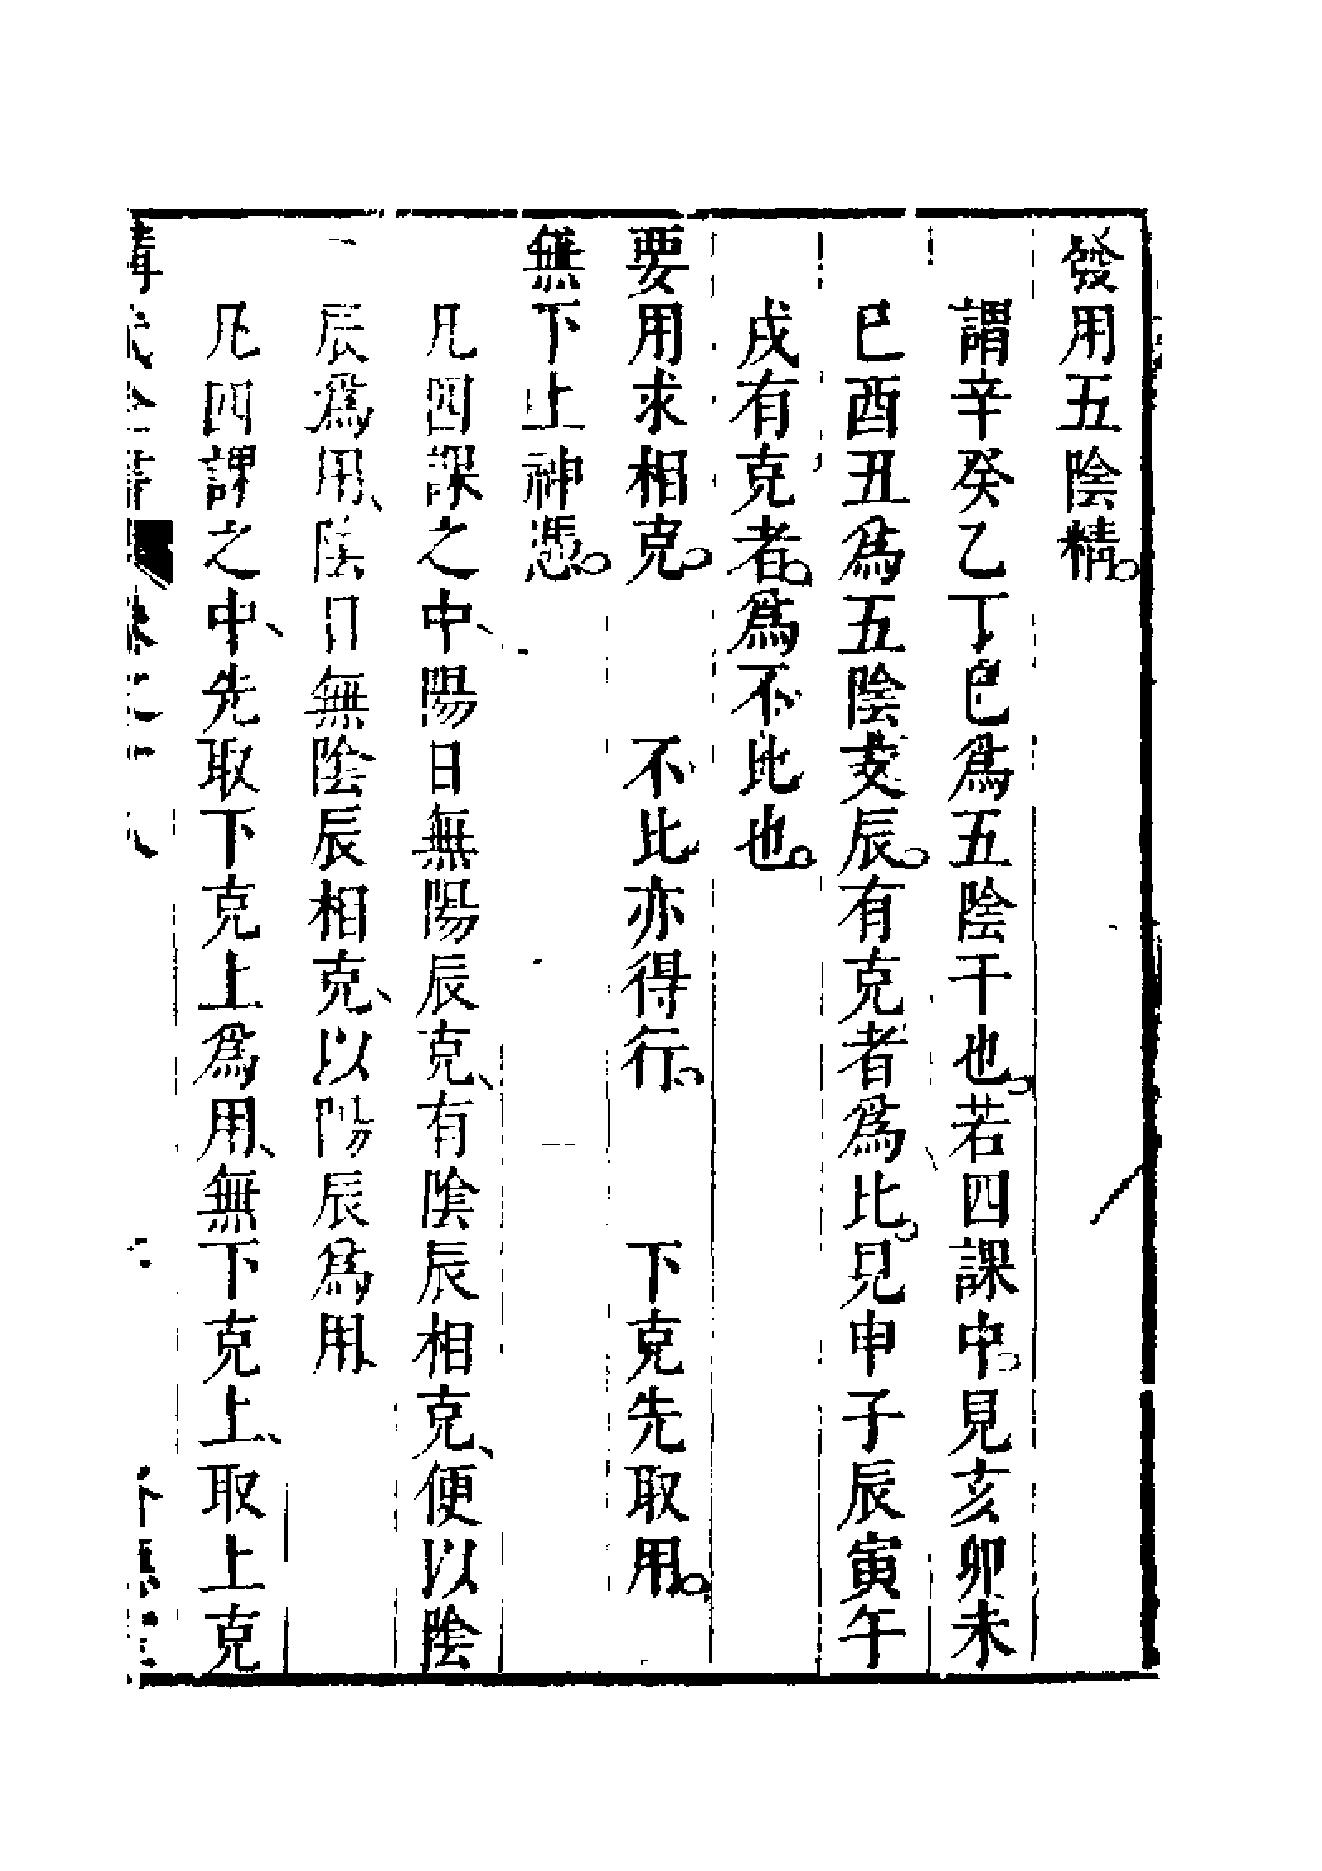 發用五陰精。
謂辛癸乙丁己爲五陰干也。若四課中。見亥卯未
巳酉丑爲五陰支辰。有克者爲比。見申子辰寅午
戌有克者。爲不比也。
要用求相克。　不比亦得行。　下克先取用。
無下上神憑。
凡四課之中、陽日無陽辰克、有陰辰相克、便以陰
辰爲用、陰日無陰辰相克、以陽辰爲用、
凡四課之中、先取下克上爲用、無下克上、取上克